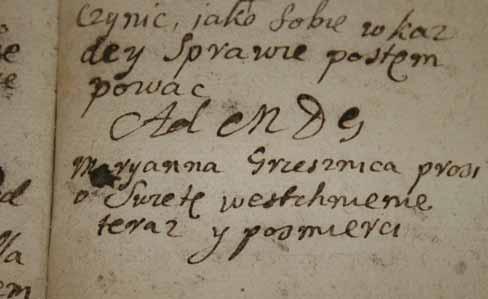 czynic, jako sobie w kaz
dey Sprawie postem
powac
Ad M D G
Maryanna Grzesznica prosi
o Swięte westchnienie
teraz y posmierci